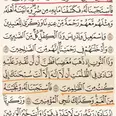 فَٱسْتَجَبْنَا لَهُۥ فَكَشَفْنَا مَا بِهِۦ مِن ضُرٍّ وَءَاتَيْنَٰهُ أَهْلَهُۥ
وَمِثْلَهُم مَّعَهُمْ رَحْمَةً مِّنْ عِندِنَا وَذِكْرَىٰ لِلْعَٰبِدِينَ
وَإِسْمَٰعِيلَ وَإِدْرِيسَ وَذَا ٱلْكِفْلِ كُلٌّ مِّنَ ٱلصَّٰبِرِينَ
وَأَدْخَلْنَٰهُمْ فِى رَحْمَتِنَآ إِنَّهُم مِّنَ ٱلصَّٰلِحِينَ
وَذَا ٱلنُّونِ إِذ ذَّهَبَ مُغَٰضِبًا فَظَنَّ أَن لَّن نَّقْدِرَ عَلَيْهِ
فَنَادَىٰ فِى ٱلظُّلُمَٰتِ أَن لَّآ إِلَٰهَ إِلَّآ أَنتَ سُبْحَٰنَكَ
إِنِّى كُنتُ مِنَ ٱلظَّٰلِمِينَ فَٱسْتَجَبْنَا لَهُۥ وَنَجَّيْنَٰهُ مِنَ
ٱلْغَمِّ وَكَذَٰلِكَ نُۨجِى ٱلْمُؤْمِنِينَ وَزَكَرِيَّآ